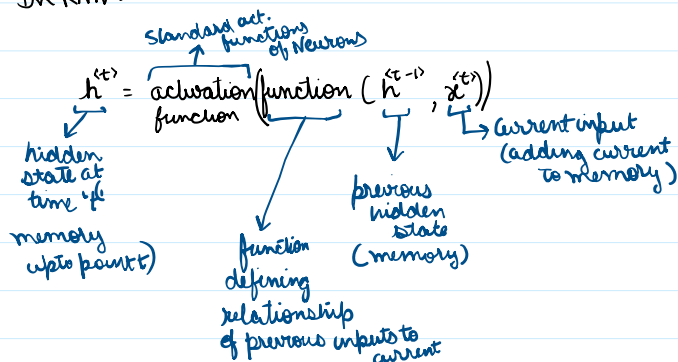 Standard act.
functions
of Neurons
h<t> = activation (function (h<t-1>, x<t>))
function
hidden
state at
time 't'
memory
upto point t)
function
defining
relationship
of previous inputs to
current
previous
hidden
state
(memory)
current input
(adding current
to memory)